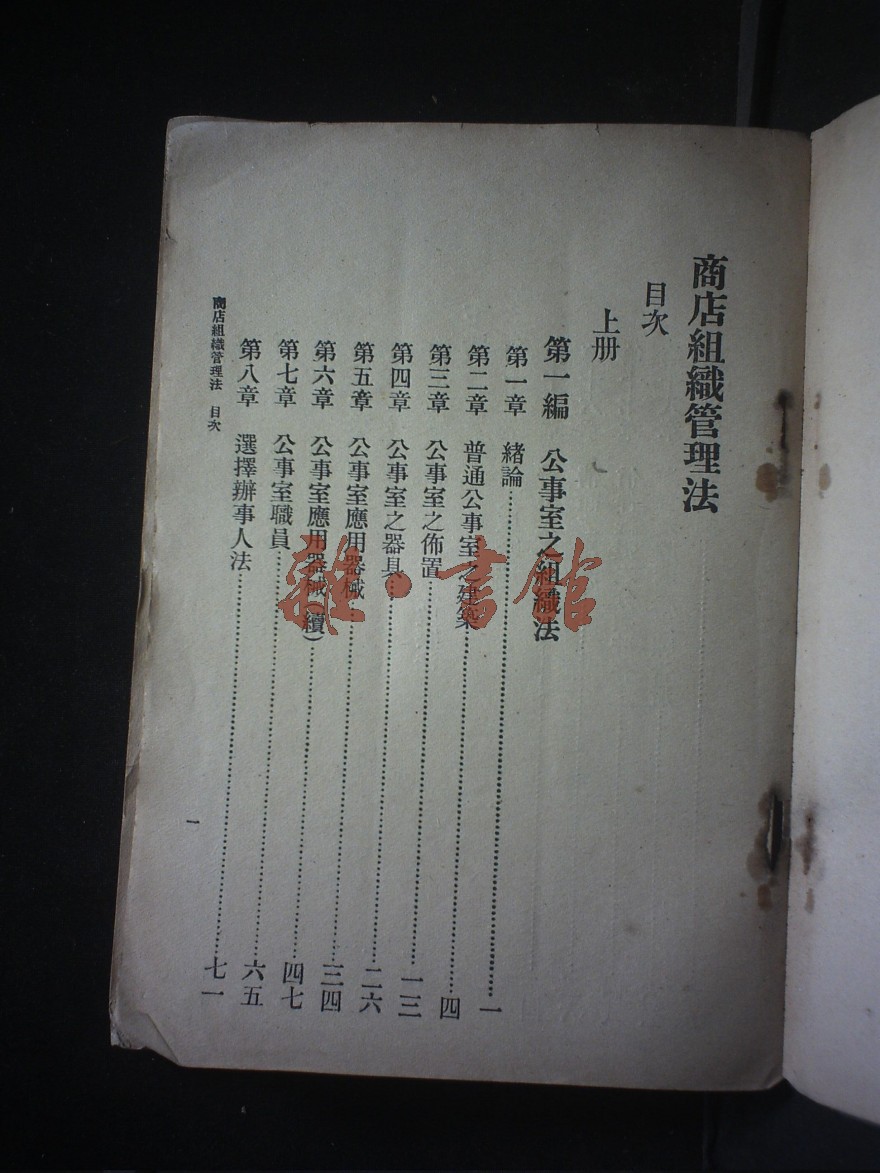 商店組織管理法
目次
上册
第一編 公事室之組織法
第一章 緒論……一
第二章 普通公事室之建築……四
第三章 公事室之佈置……一三
第四章 公事室之器具……二六
第五章 公事室應用器械……三四
第六章 公事室應用器械(續)……四七
第七章 公事室職員……六五
第八章 選擇辦事人法……七一
商店組織管理法 目次
一
雜·書館